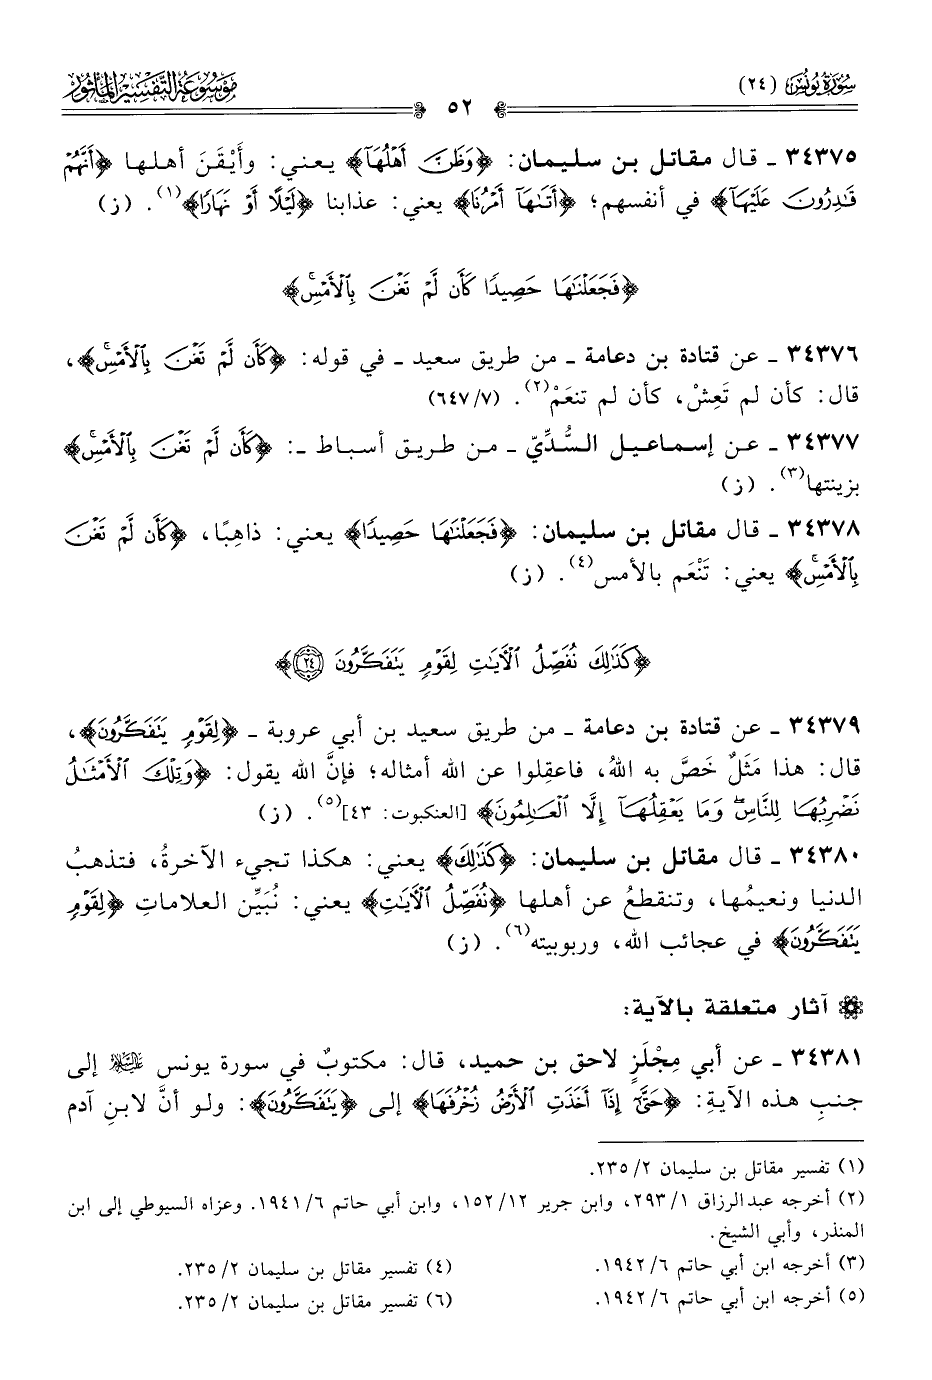 سُورَةُ يُونُسَ (٢٤)
٥٢
مَوْسُوعَةُ التَّفْسِيرِ المَأْثُورِ
٣٤٣٧٥ ـ قال مقاتل بن سليمان: ﴿وَظَنَّ أَهْلُهَآ﴾ يعني: وأَيْقَنَ أهلها ﴿أَنَّهُمْ
قَٰدِرُونَ عَلَيْهَآ﴾ في أنفسهم؛ ﴿أَتَىٰهَآ أَمْرُنَا﴾ يعني: عذابنا ﴿لَيْلًا أَوْ نَهَارًا﴾(١). (ز)
﴿فَجَعَلْنَٰهَا حَصِيدًا كَأَن لَّمْ تَغْنَ بِٱلْأَمْسِۚ﴾
٣٤٣٧٦ ـ عن قتادة بن دعامة ـ من طريق سعيد ـ في قوله: ﴿كَأَن لَّمْ تَغْنَ بِٱلْأَمْسِۚ﴾،
قال: كأن لم تَعِشْ، كأن لم تنعَمْ(٢). (٦٤٧/٧)
٣٤٣٧٧ ـ عن إسماعيل السُّدِّيّ ـ من طريق أسباط ـ: ﴿كَأَن لَّمْ تَغْنَ بِٱلْأَمْسِۚ﴾
بزينتها(٣). (ز)
٣٤٣٧٨ ـ قال مقاتل بن سليمان: ﴿فَجَعَلْنَٰهَا حَصِيدًا﴾ يعني: ذاهِبًا، ﴿كَأَن لَّمْ تَغْنَ
بِٱلْأَمْسِۚ﴾ يعني: تَنْعَم بالأمس(٤). (ز)
﴿كَذَٰلِكَ نُفَصِّلُ ٱلْأٓيَٰتِ لِقَوْمٍ يَتَفَكَّرُونَ ٢٤﴾
٣٤٣٧٩ ـ عن قتادة بن دعامة ـ من طريق سعيد بن أبي عروبة ـ ﴿لِقَوْمٍ يَتَفَكَّرُونَ﴾،
قال: هذا مَثَلٌ خَصَّ به اللهُ، فاعقِلوا عن الله أمثاله؛ فإنَّ الله يقول: ﴿وَتِلْكَ ٱلْأَمْثَٰلُ
نَضْرِبُهَا لِلنَّاسِۖ وَمَا يَعْقِلُهَآ إِلَّا ٱلْعَٰلِمُونَ﴾ [العنكبوت: ٤٣](٥). (ز)
٣٤٣٨٠ ـ قال مقاتل بن سليمان: ﴿كَذَٰلِكَ﴾ يعني: هكذا تجيء الآخرةُ، فتذهبُ
الدنيا ونعيمُها، وتنقطعُ عن أهلها ﴿نُفَصِّلُ ٱلْأٓيَٰتِ﴾ يعني: نُبَيِّن العلاماتِ ﴿لِقَوْمٍ
يَتَفَكَّرُونَ﴾ في عجائب الله، وربوبيته(٦). (ز)
آثار متعلقة بالآية:
٣٤٣٨١ ـ عن أبي مِجْلَزٍ لاحق بن حميد، قال: مكتوبٌ في سورة يونس عليه السلام إلى
جنبِ هذه الآيةِ: ﴿حَتَّىٰٓ إِذَآ أَخَذَتِ ٱلْأَرْضُ زُخْرُفَهَا﴾ إلى ﴿يَتَفَكَّرُونَ﴾: ولو أنَّ لابنِ آدم
(١) تفسير مقاتل بن سليمان ٢/ ٢٣٥.
(٢) أخرجه عبدالرزاق ١/ ٢٩٣، وابن جرير ١٢/ ١٥٢، وابن أبي حاتم ٦/ ١٩٤١. وعزاه السيوطي إلى ابن
المنذر، وأبي الشيخ.
(٣) أخرجه ابن أبي حاتم ٦/ ١٩٤٢.
(٤) تفسير مقاتل بن سليمان ٢/ ٢٣٥.
(٥) أخرجه ابن أبي حاتم ٦/ ١٩٤٢.
(٦) تفسير مقاتل بن سليمان ٢/ ٢٣٥.